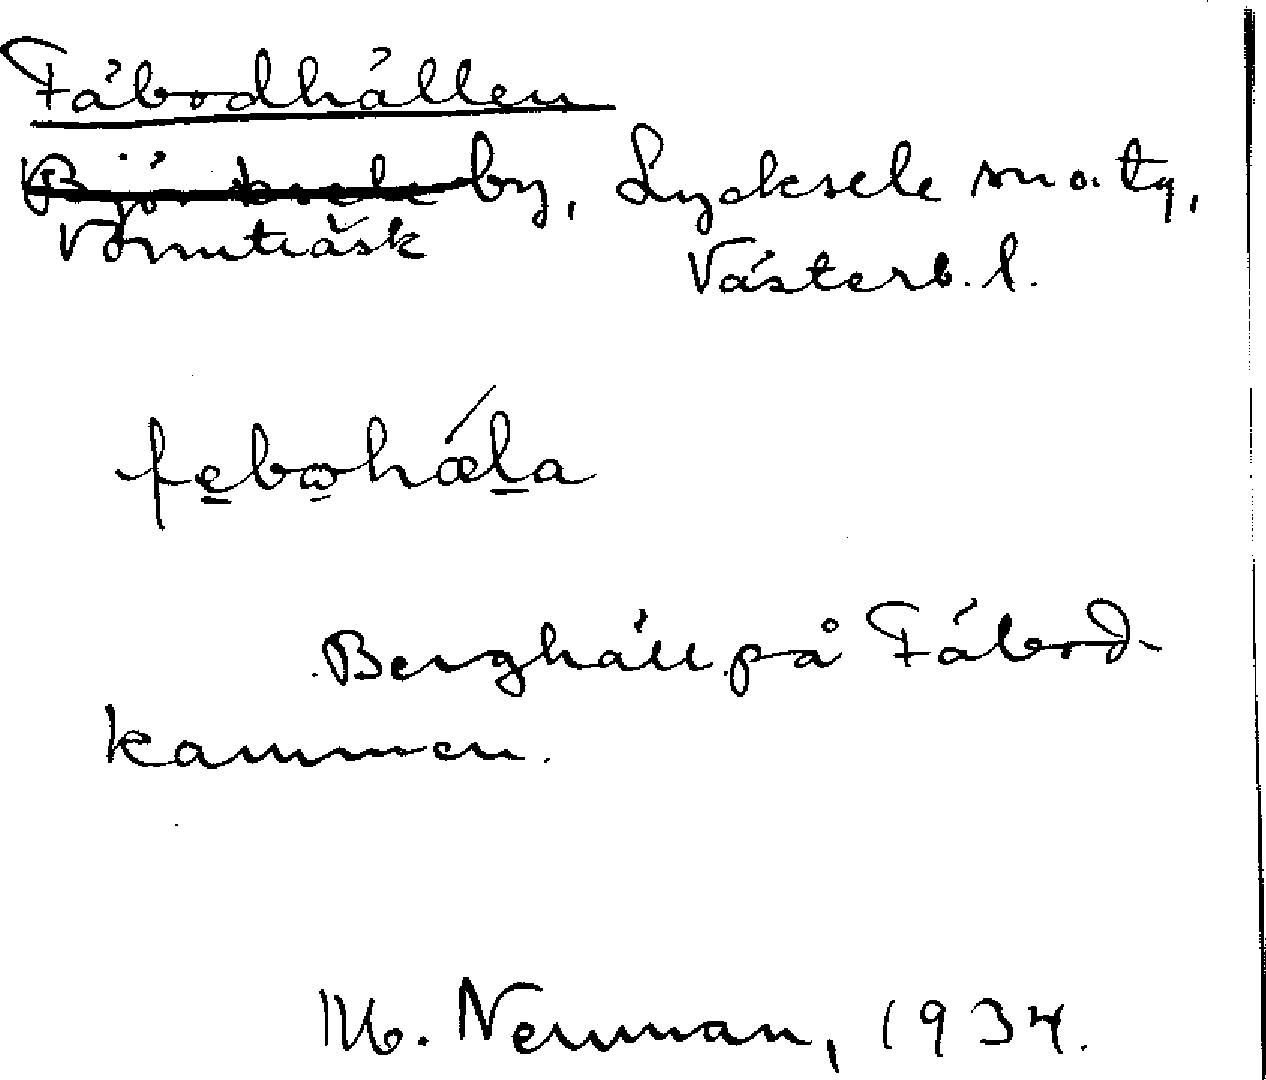 Fäbodhällen
Björksele by, Lycksele snoty,
Vormträsk
Västerb. l.
febohäla
Berghäll på Fäbod-
kammen.
M. Nenman, 1934.